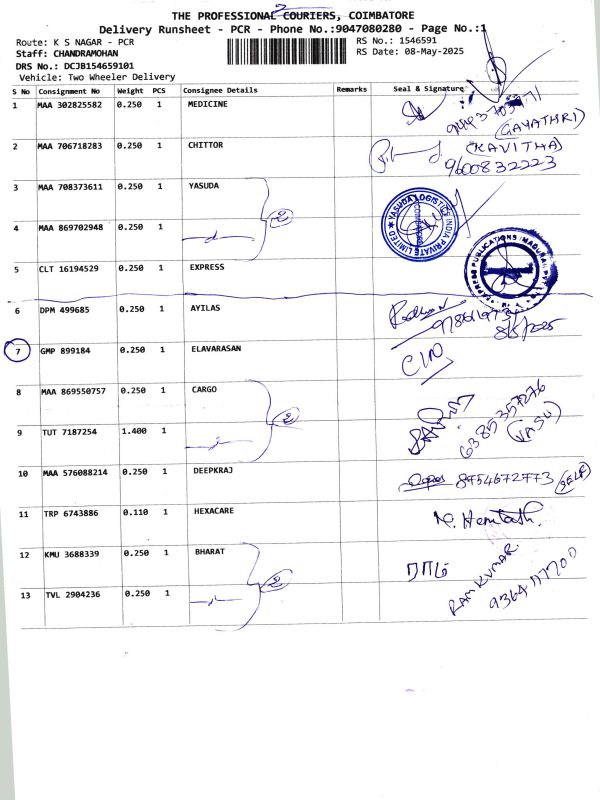 THE PROFESSIONAL COURIERS, COIMBATORE
Delivery Runsheet - PCR - Phone No.:9047080280 - Page No.:1
Route: K S NAGAR - PCR
RS No.: 1546591
Staff: CHANDRAMOHAN
RS Date: 08-May-2025
DRS No.: DCJB154659101
Vehicle: Two Wheeler Delivery
S No Consignment No Weight PCS Consignee Details Remarks Seal & Signature
1 MAA 302825582 0.250 1 MEDICINE
(GAYATHRI)
2 MAA 706718283 0.250 1 CHITTOR (KAVITHA)
9600832223
3 MAA 708373611 0.250 1 YASUDA
2
YASUDA LOGISTICS INDIA PRIVATE LIMITED
4 MAA 869702948 0.250 1
5 CLT 16194529 0.250 1 EXPRESS
EXPRESS PUBLICATIONS (MADURAI)
6 DPM 499685 0.250 1 AYILAS
8/5/2025
7 GMP 899184 0.250 1 ELAVARASAN
8 MAA 869550757 0.250 1 CARGO
2
6385357276
(VASU)
9 TUT 7187254 1.400 1
10 MAA 576088214 0.250 1 DEEPKRAJ 8954672773 (SELF)
11 TRP 6743886 0.110 1 HEXACARE
12 KMU 3688339 0.250 1 BHARAT
2
ராம்
RAMKUMAR
13 TVL 2904236 0.250 1